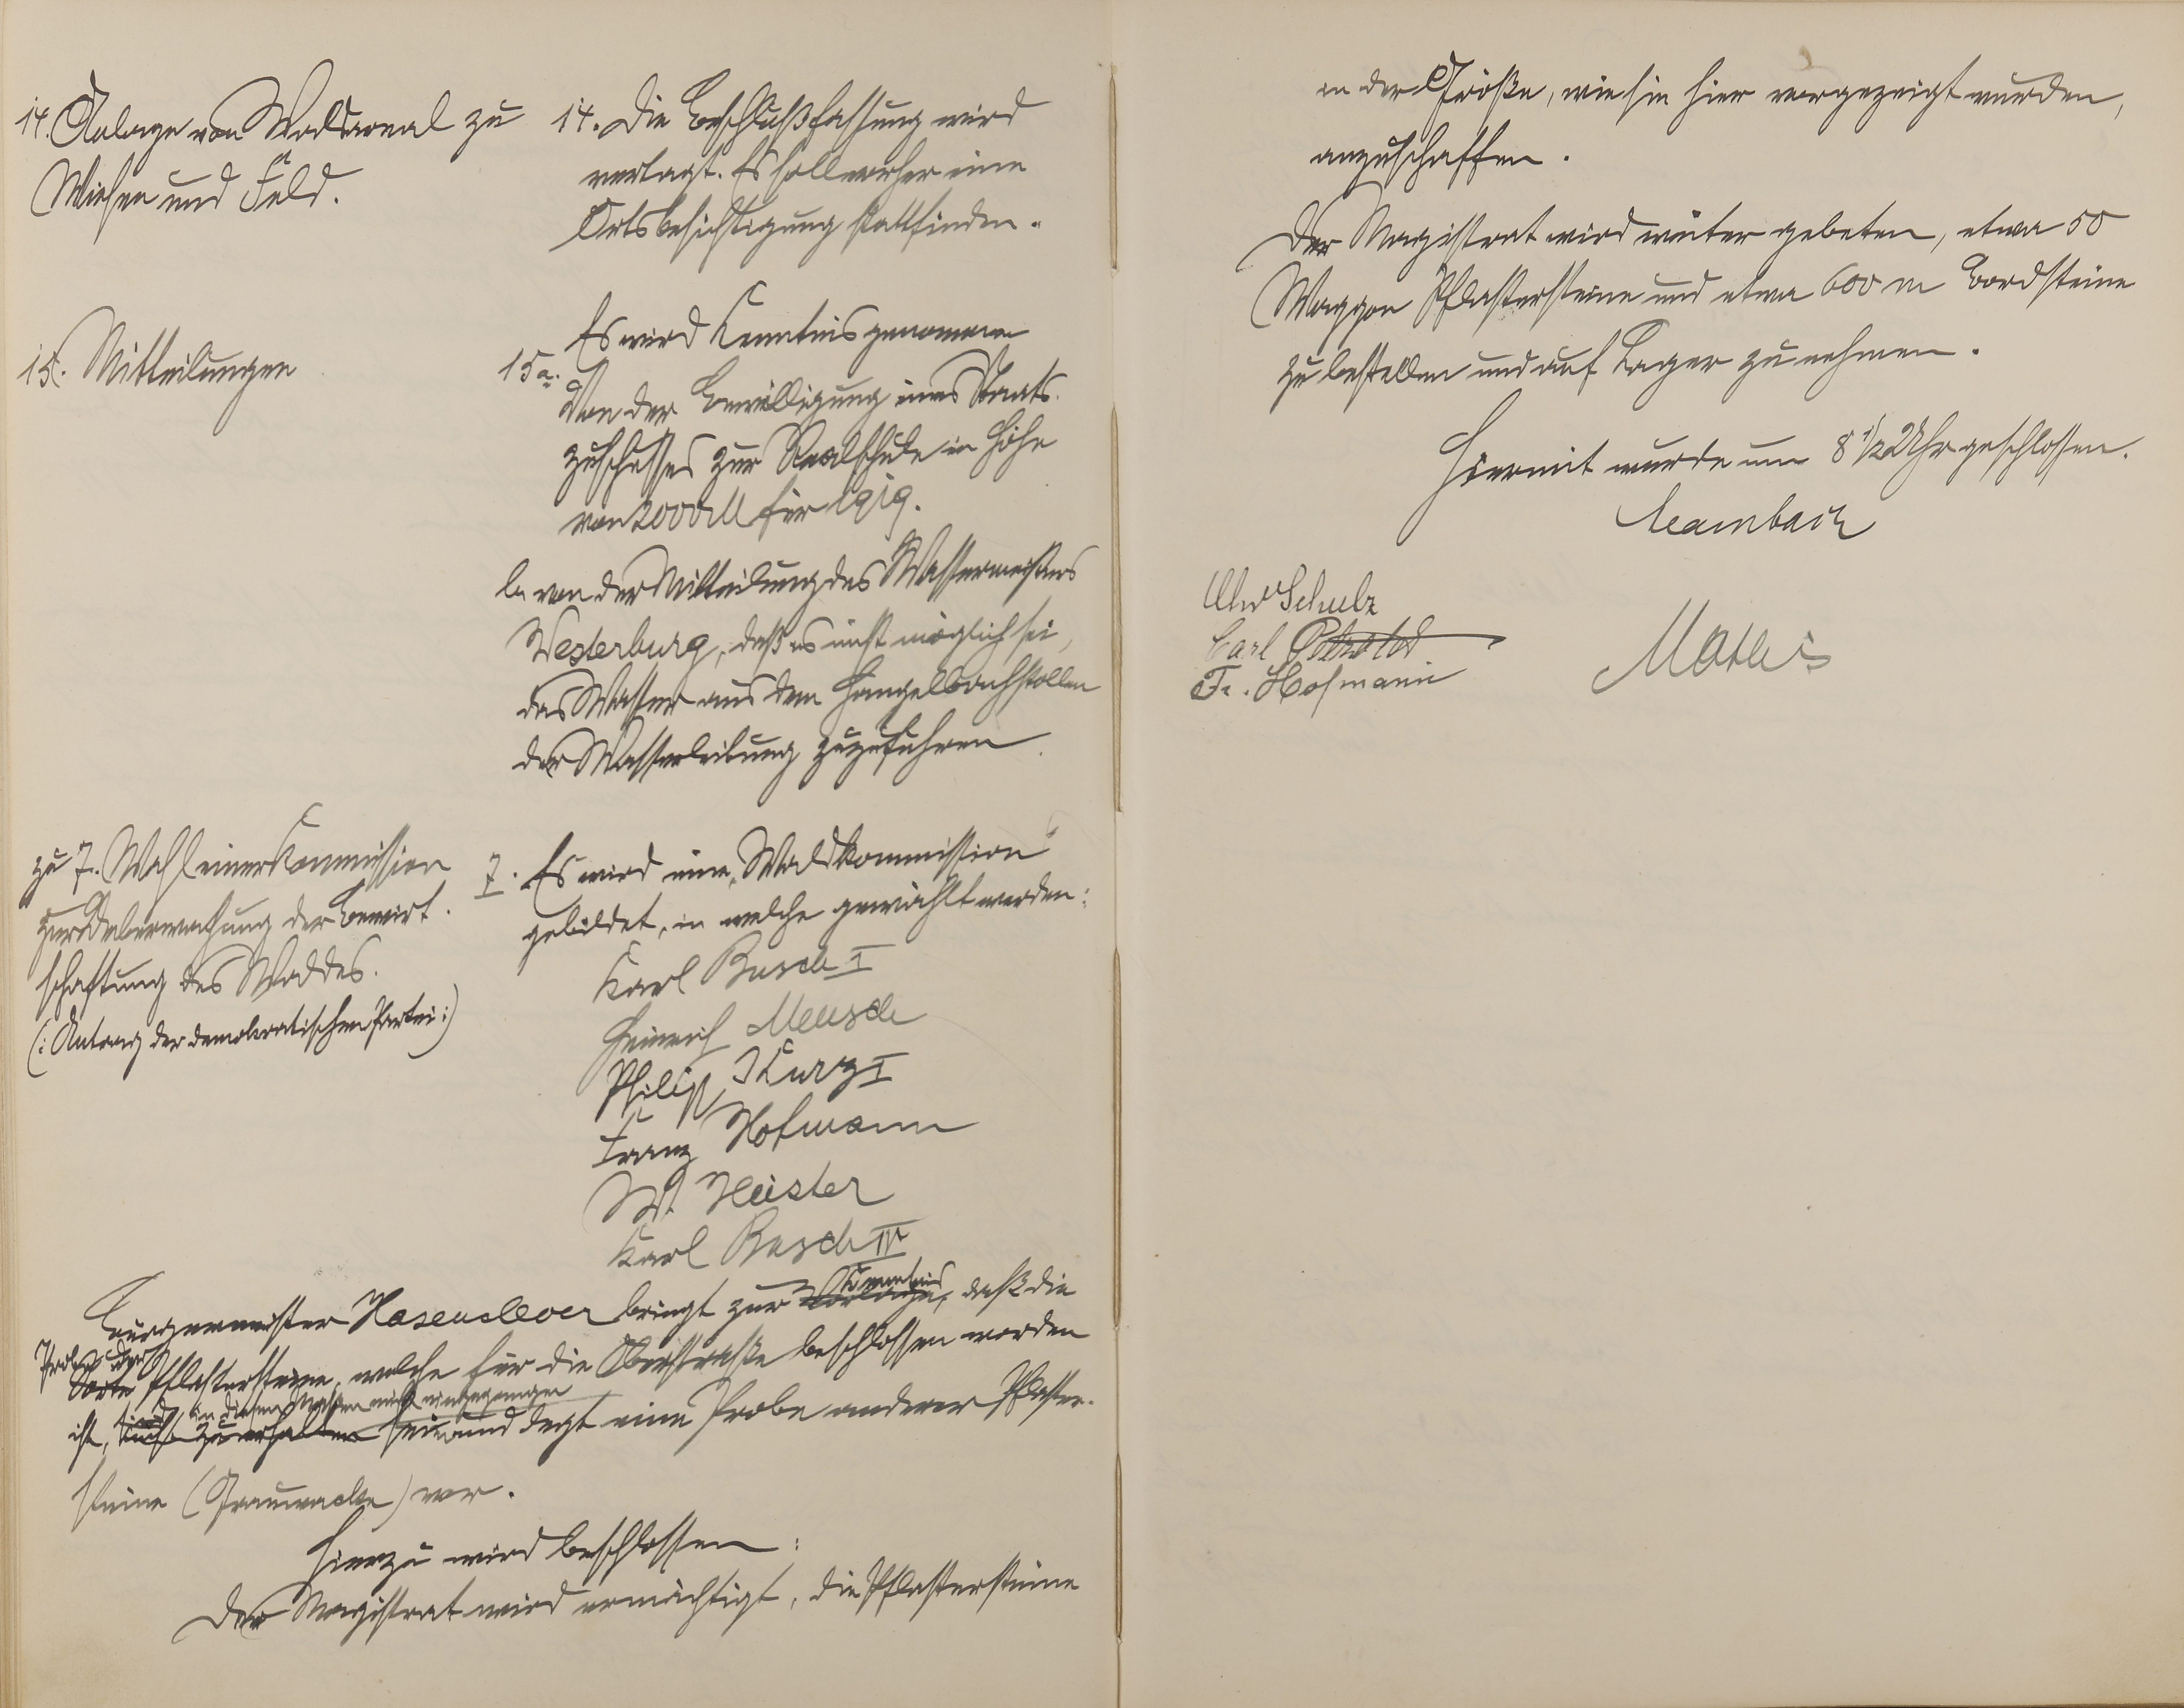 14. Anlage von Waldareal zu
Wiesen und Feld.
14. Die Beschlußfassung wird
vertagt. Es soll vorher eine
Ortsbesichtigung stattfinden.
15. Mitteilungen
Es wird Kenntnis genommen
15a. Von der Bewilligung eines Staats-
zuschusses zur Realschule in Höhe
von 2000 M für 1919.
b. von der Mitteilung des Wassermeisters
Westerburg, daß es nicht möglich sei,
das Wasser aus dem Hangelbachstollen
der Wasserleitung zuzuführen.
zu 7. Wahl einer Kommission
zur Ueberwachung der Bewirt-
schaftung des Waldes.
(: Antrag der demokratischen Partei :)
7. Es wird eine "Waldkommission"
gebildet, in welche gewählt werden:
Karl Busch I
Heinrich Mensch
Philipp Kurz I
Franz Hofmann
W. Heister
Karl Busch IV
Bürgermeister Hasenclever bringt zur Vorlage, Kenntnis daß die
Sorte Probe der Pflastersteine, welche für die Obergasse beschlossen worden
ist, nicht zu erhalten in diesen nicht eingegangen sei und legt eine Probe anderer Pflaster-
steine (Grauwacke) vor.
Hierzu wird beschlossen:
Der Magistrat wird ermächtigt, die Pflastersteine
in der Größe, wie sie hier vorgezeigt wurden,
anzuschaffen.
Der Magistrat wird weiter gebeten, etwa 50
Waggon Pflastersteine und etwa 600 m Bordsteine
zu bestellen und auf Lager zu nehmen.
Hiermit wurde um 8 1/2 Uhr geschlossen.
Schulz
Carl
Fr. Hofmann